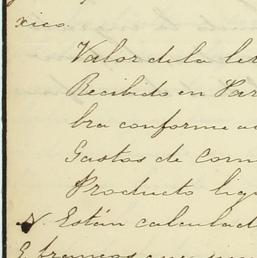 xico.
Valor de la le
Recibido en Par
bra conforme a
Gastos de Com
Producto liqu
N. Están calculad
francos